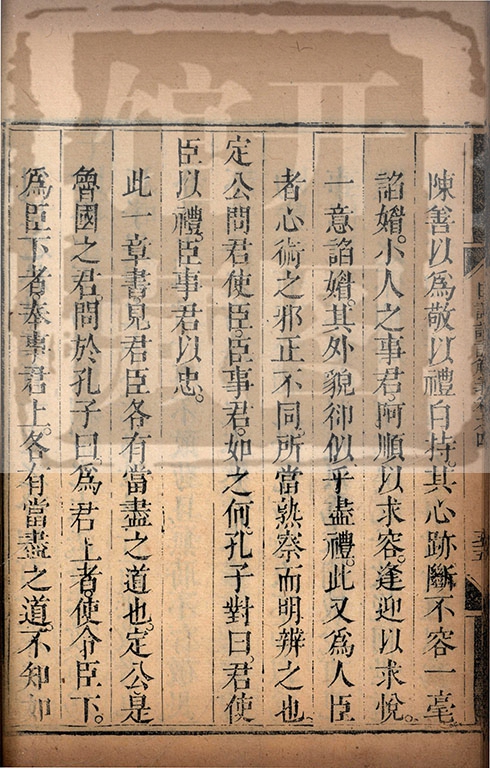 陳善以為敬以禮自持。其心跡斷不容一毫
諂媚。小人之事君。阿順以求容。逢迎以求悅。
一意諂媚。其外貌卻似乎盡禮。此又為人臣
者心術之邪正不同。所當熟察而明辨之也。
定公問君使臣。臣事君。如之何。孔子對曰。君使
臣以禮。臣事君以忠。
此一章書。見君臣各有當盡之道也。定公是
魯國之君。問於孔子曰。為君上者。使令臣下。
為臣下者。奉事君上。各有當盡之道。不知如